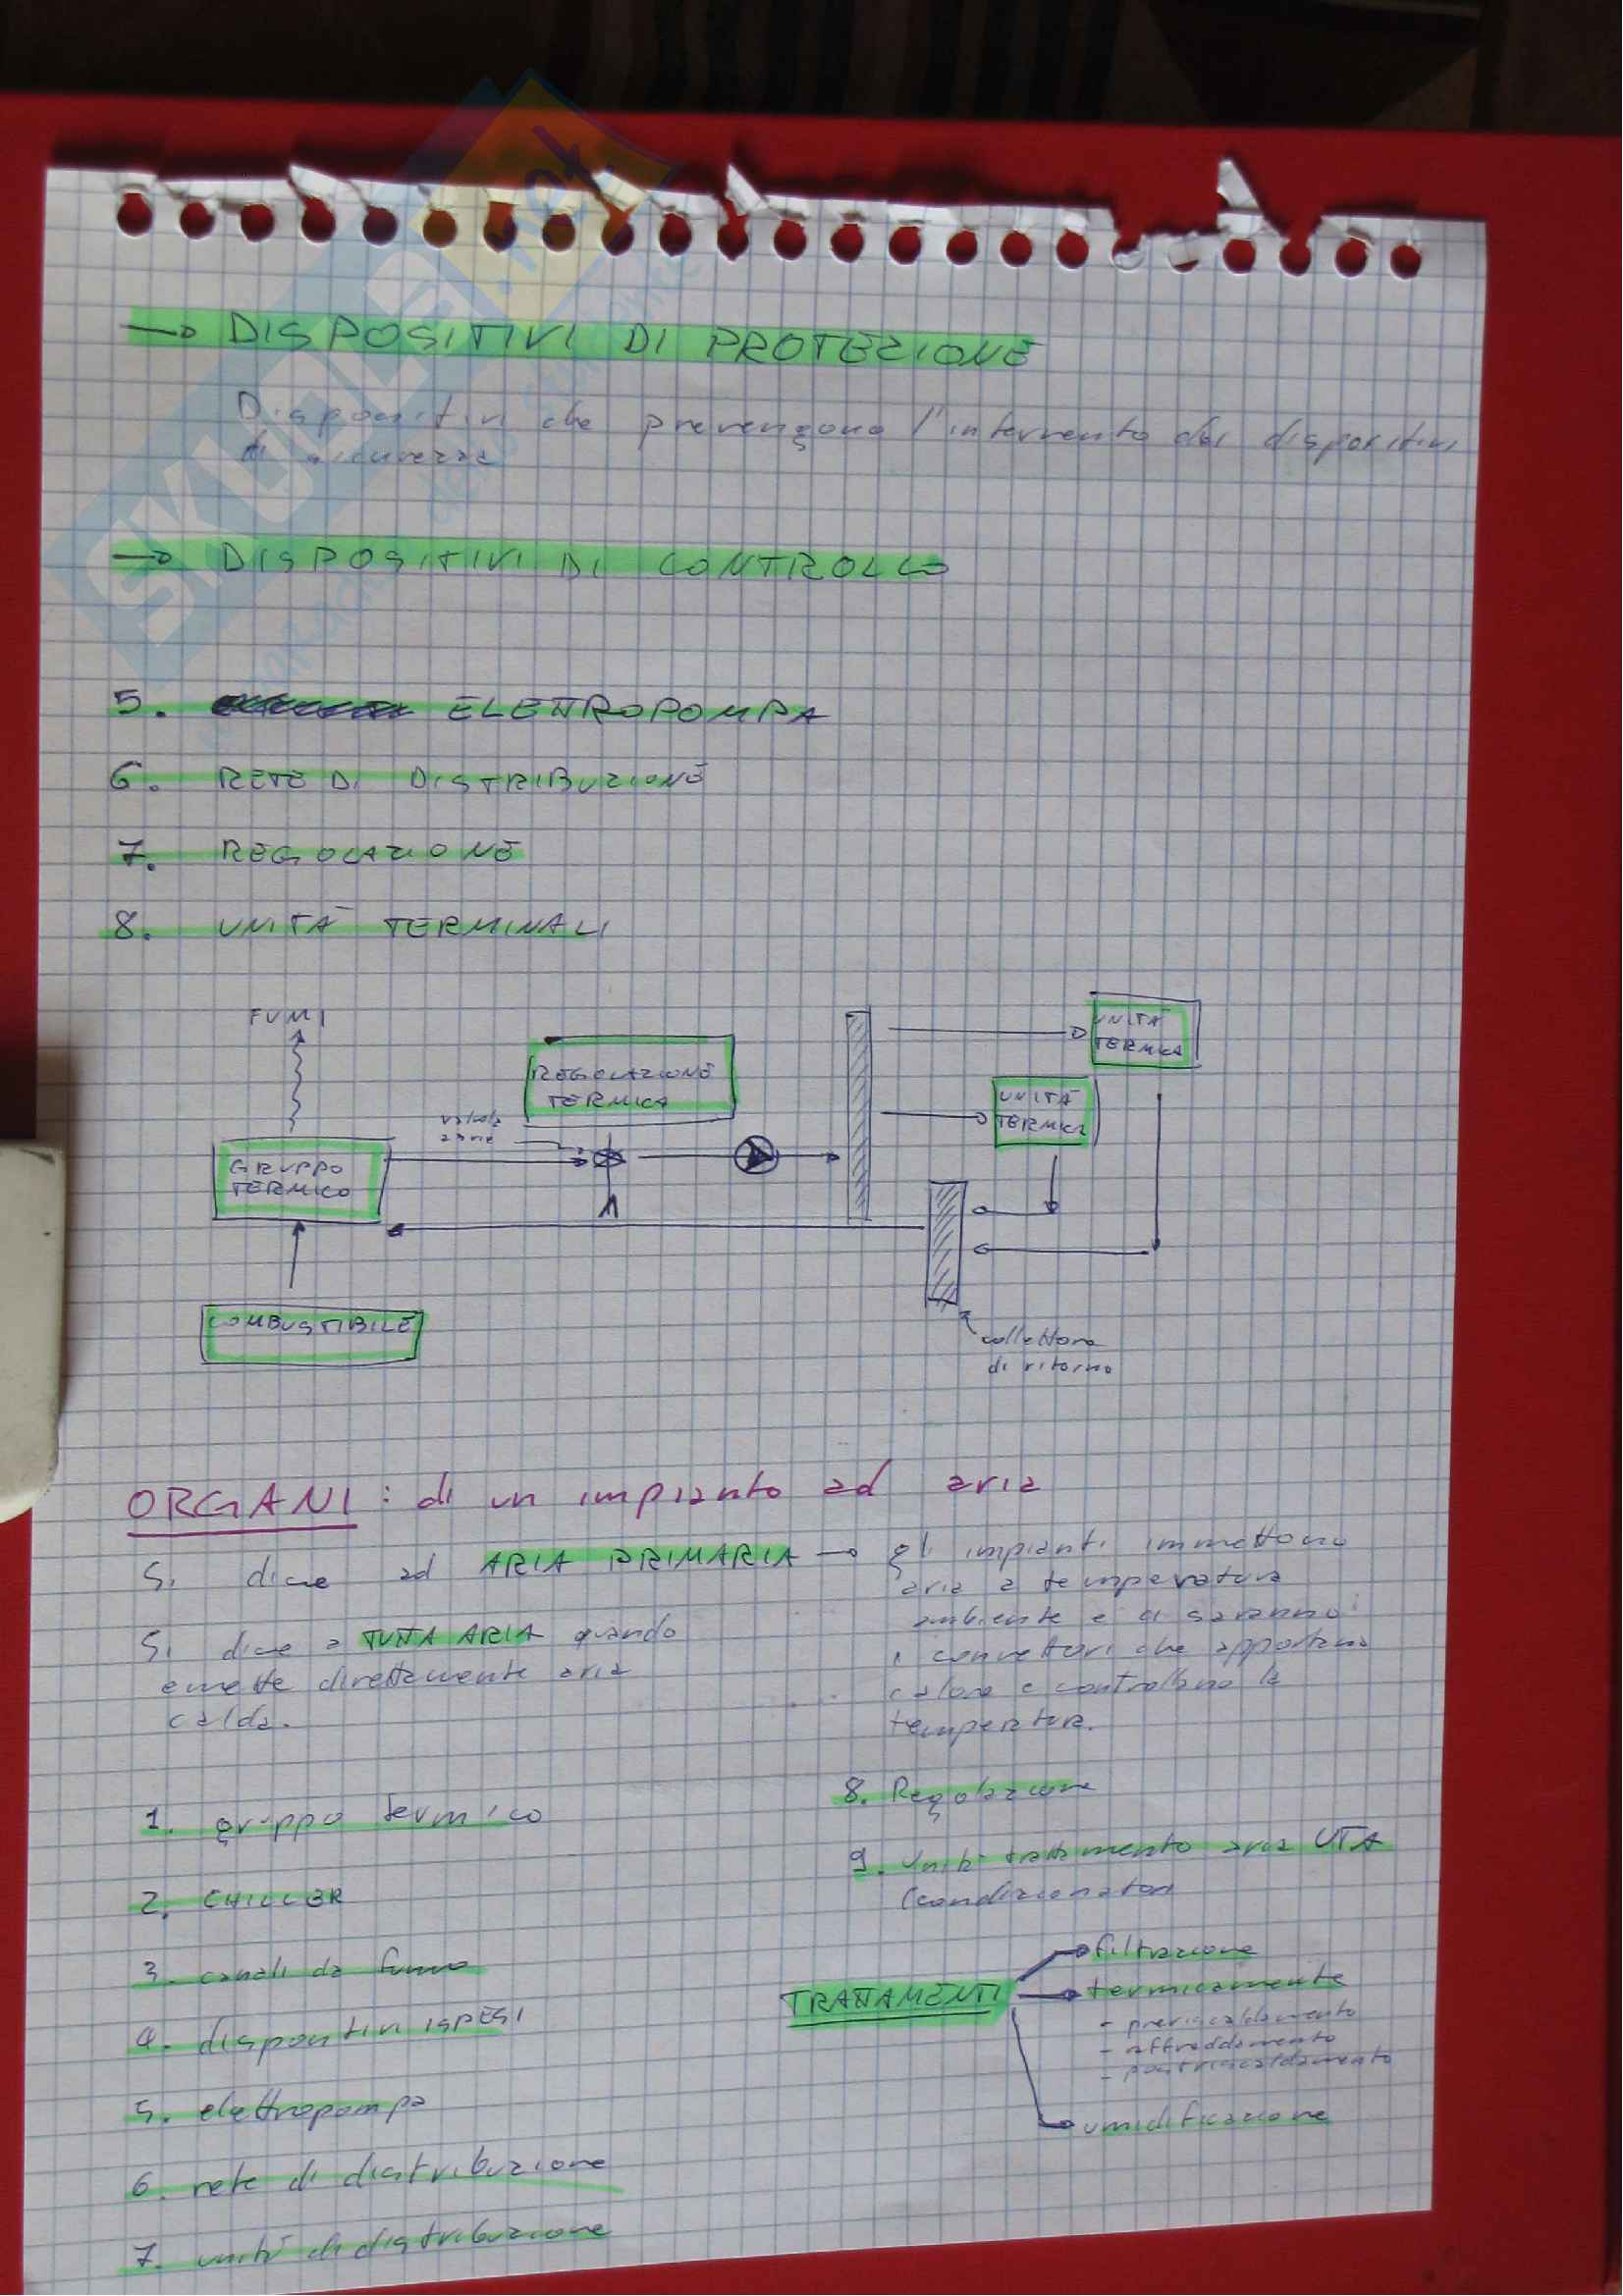 → DISPOSITIVI DI PROTEZIONE
Dispositivi che prevengono l'intervento dei dispositivi
di sicurezza
→ DISPOSITIVI DI CONTROLLO
5. ELETTROPOMPA
6. RETE DI DISTRIBUZIONE
7. REGOLAZIONE
8. UNITÀ TERMINALI
FUMI
REGOLAZIONE
TERMICA
UNITÀ
TERMICA
UNITÀ
TERMICA
valvola
GRUPPO
TERMICO
COMBUSTIBILE
collettore
di ritorno
ORGANI: di un impianto ad aria
Si dice ad ARIA PRIMARIA → gli impianti immettono
aria a temperatura
ambiente e ci saranno
i convettori che apportano
calore e controllano la
temperatura.
Si dice a TUTTA ARIA quando
emette direttamente aria
calda.
1. gruppo termico
2. CHILLER
3. canali da fumo
4. dispositivi ISPESL
5. elettropompa
6. rete di distribuzione
7. unità di distribuzione
8. Regolazione
9. Unità trattamento aria UTA
(condizionatori
TRATTAMENTI
filtrazione
termicamente
- preriscaldamento
- affreddamento
- postriscaldamento
umidificazione
SKUOLA.net